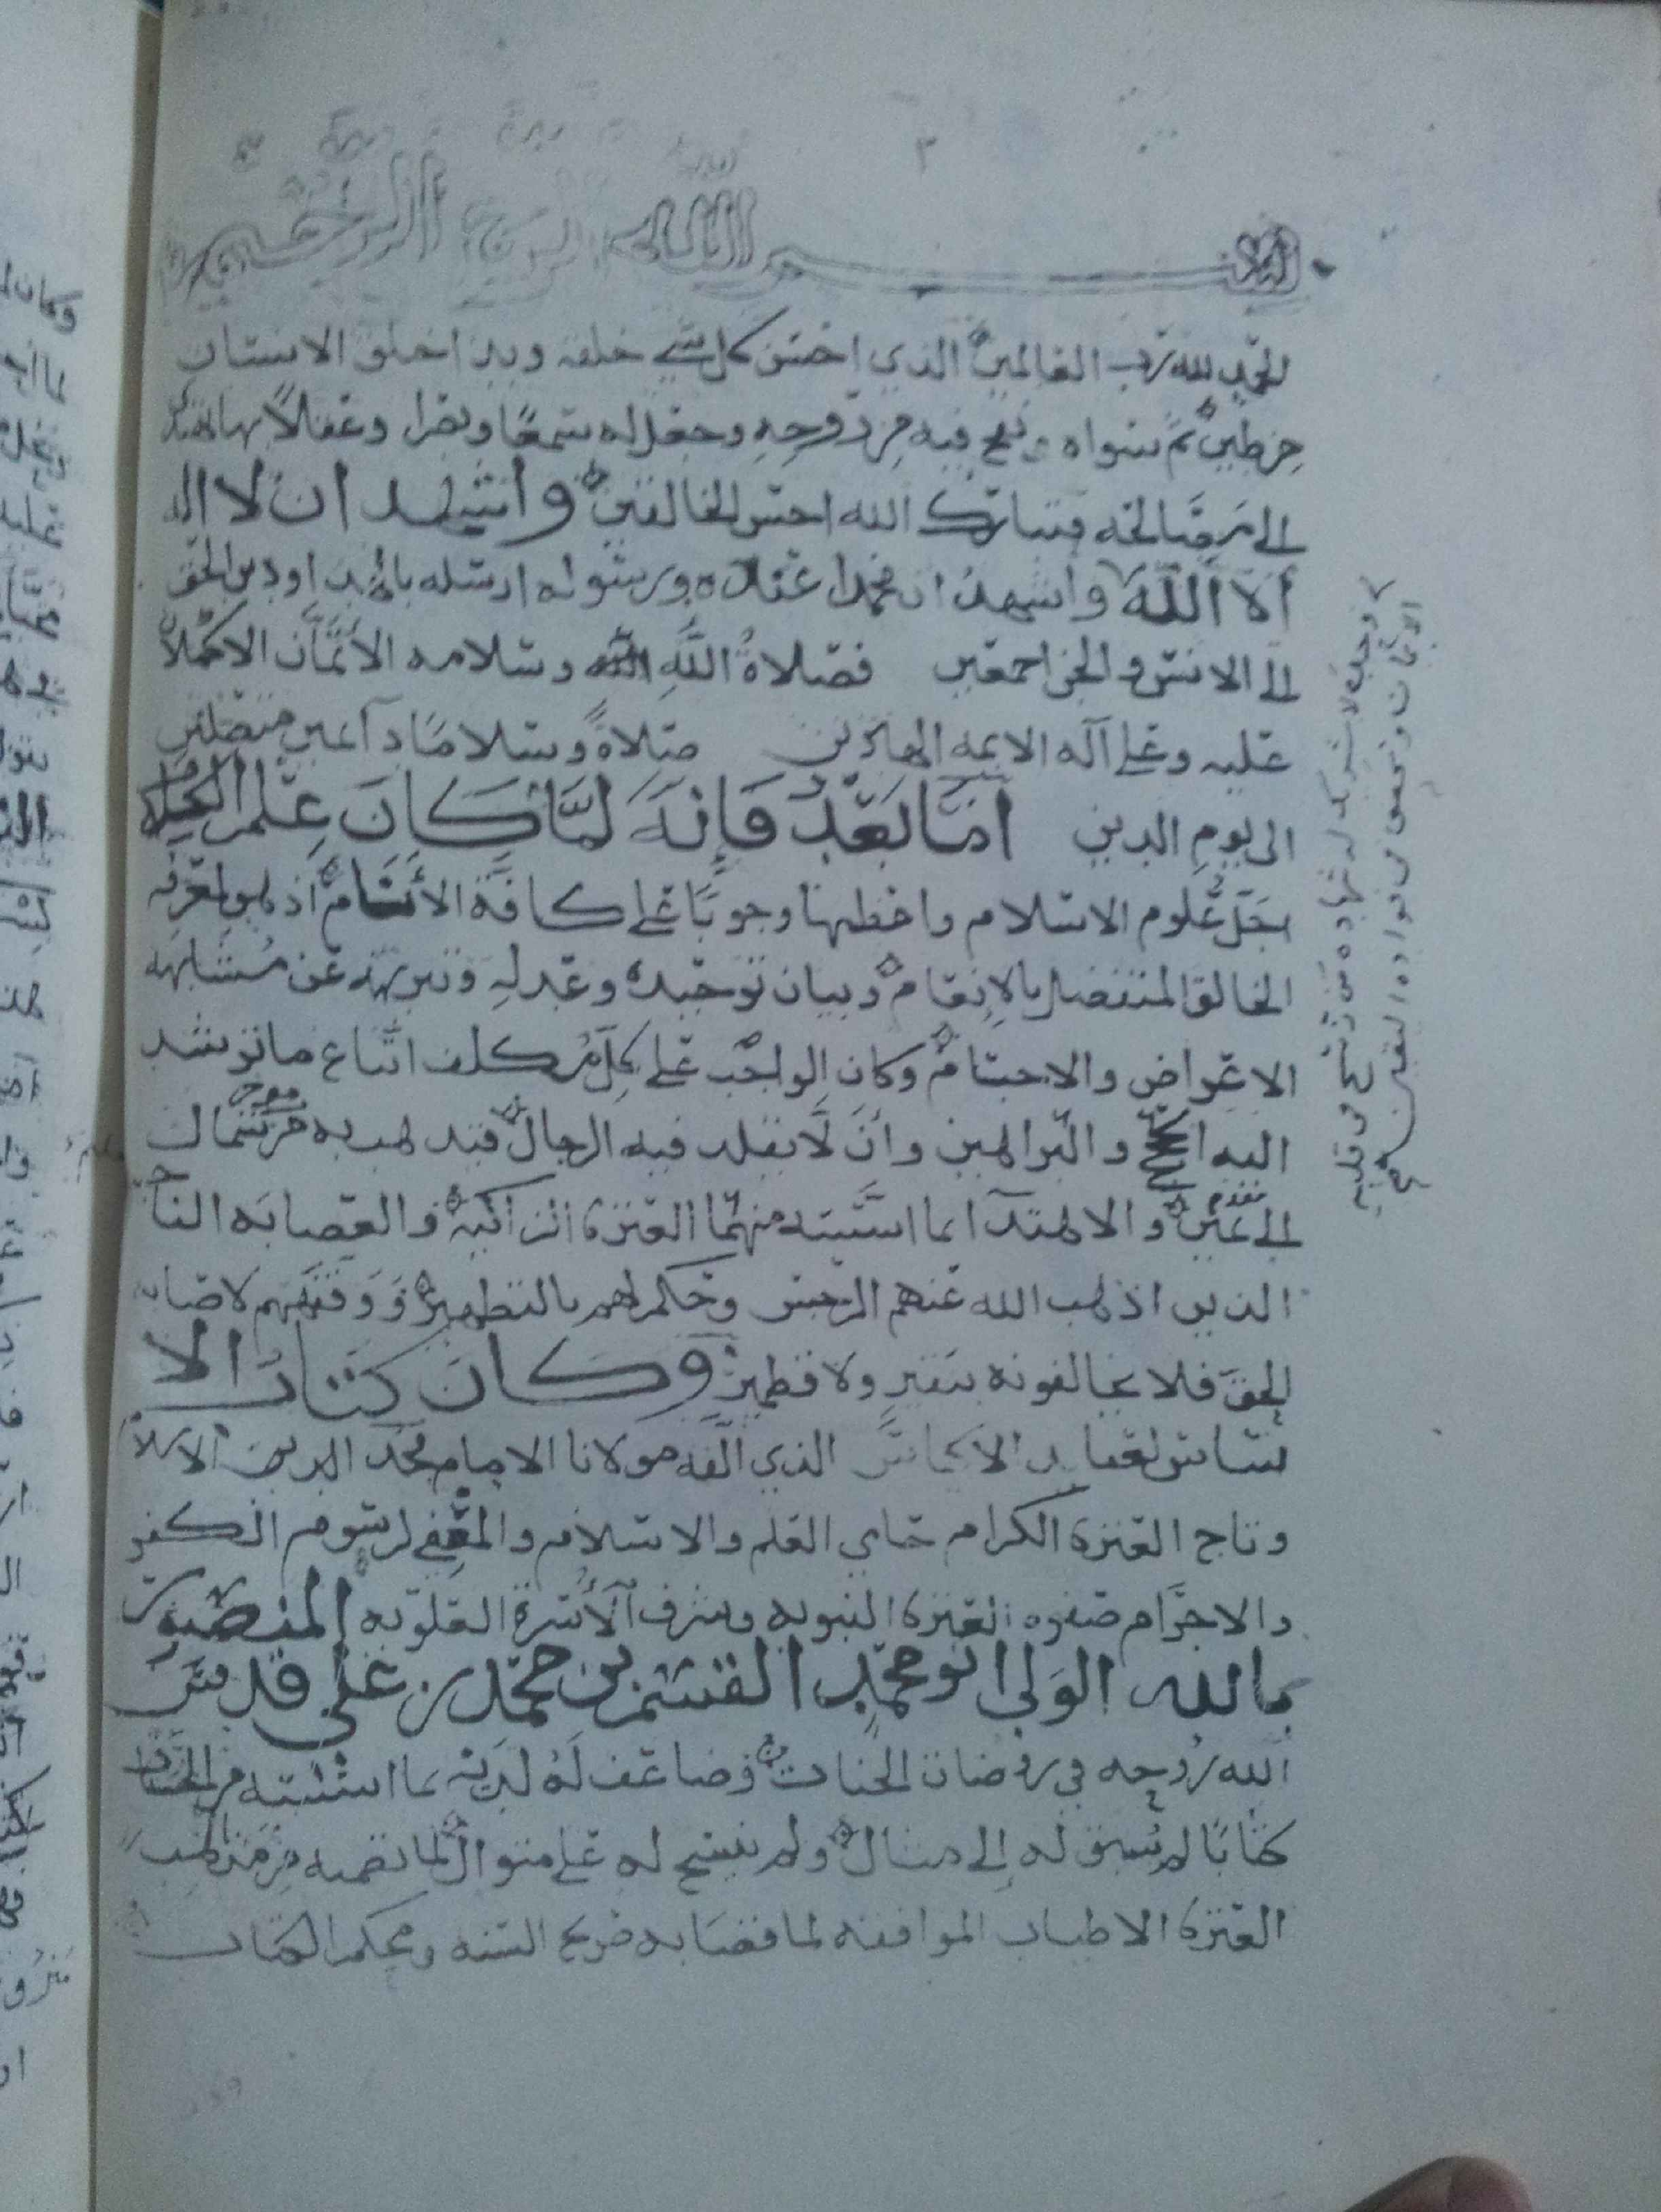 ٢
بسم الله الرحمن الرحيم
الحمد لله رب العالمين الذي احسن كل شي خلقه وبدا خلق الانسان
من طين ثم سواه ونفخ فيه من روحه وجعل له سمعًا وبصرا وعقلاً بها
الى مصالحه فتبارك الله احسن الخالقين واشهد ان لا اله
الا الله واشهد ان محمدا عبده ورسوله ارسله بالهدا ودين الحق
الى الانس والجن اجمعين فصلاة الله وسلامه الأتمّان الاكملان
عليه وعلى آله الايمه الهادين صلاةً وسلامًا دآئمين متصلين
الى يوم الدين امّا بعد فإنه لمّا كان علم الكلام
اجلّ علوم الاسلام واعظمها وجوبًا على كافة الأنام اذ هو لمعرفة
الخالق المتفضل بالإنعام وبيان توحيده وعدله وتنزيهه عن مشابهة
الاعراض والاجسام وكان الواجب على كل مكلف اتباع ما توشد
اليه والبراهين وأن لا يقلد فيه الرجال فيذهب به من شمال
الى يمين والاهتدآ بما اسسته منهما العترة الزاكية والعصابه الناجية
الذين اذهب الله عنهم الرجس وحكم لهم بالتطهير ووفقهم لاصابة
الحق فلا يخالفونه بنقير ولا قطمير وكان كتاب الا
ساس لعقايد الاكياس الذي ألّفه مولانا الامام مجد الدين الاسلام
وتاج العترة الكرام حامي العلم والاسلام والمعفي لرسوم الكفر
والاجرام صفوه العترة النبويه وشرف الأسرة العلويه المنصور
بالله الولي ابو محمد القسم بن محمد بن علي قدس
الله روحه في روضات الجنات وضاعف له لديه ما اسسته من الحسنات
كتابًا لم يُسبق له إلى مثال ولم ينسج له على منوال لما تضمنه من مذهب
العترة الاطياب الموافقه لما قضا به صريح السنه ومحكم الكتاب
وحده لا شريك له شهادة من رسخ في قلبه
الايمان